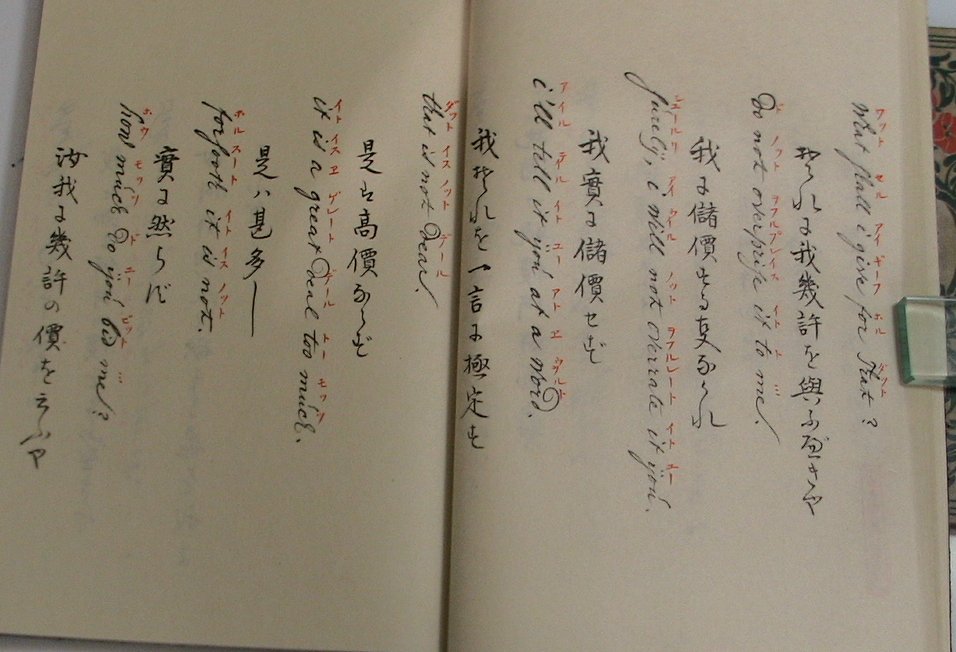 ワット セル アイ ギーフ ホル ダット
what ſhall i give for that?
それに我幾許を與ふべきや
ド ノット ヲフルプレイス イト ト ミ
do not overpriſe it to me.
我に儲價する事なかれ
シュールリ アイ ウイル ノット ヲフルレート イト ユー
ſurely, i will not overrate it you.
我實に儲價せず
アイル テイル イト ユー アト ヱ ウヲルド
i'll tell it you at a word.
我それを一言に極定す
ダット イス ノット デール
that is not dear.
是は高價ならず
イト イス ヱ ゲレート デール トー モッツ
it is a great deal too much.
是ハ甚多し
ホルスート イト イス ノット
forſoth it is not.
實に然らず
ホウ モッツ ド ユー ビット ミ
how much do you bid me?
汝我に幾許の價を云ふや